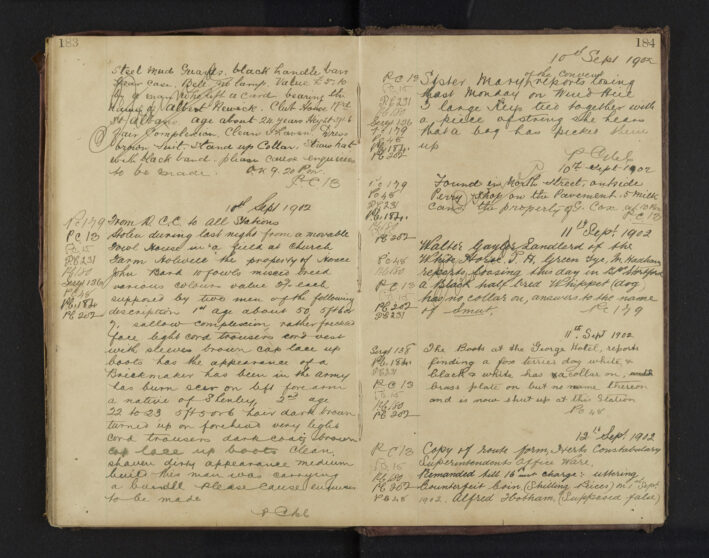 183
Steel Mud Guards, black handle bars
case. Bell lamp. Value £5.10
by a man who left a card bearing the
name of Albert Newack. Club House
St Albans age about 24 years Height 5ft 6
fair Complexion. Clean Shaven. Dress
brown Suit, Stand up Collar. Straw hat
with black band. please cause enquiries
to be made. 9.20 Pm
PC 13
10th Sept 1902
PC 179 From H.C.C. to All Stations
PC 13 Stolen during last night from a movable
PC 15 Fowl House in a field at Church
PC 231 Farm the property of Horace
PC 180 John Ward 10 fowls mixed breed
Sergt 136 various colours value of each
PC 48 supposed by two men of the following
PC 184 description 1st age about 50, 5ft 6 or
PC 202 7, sallow complexion, rather
face light cord trousers cord vest
with sleeves brown cap lace up
boots has the appearance of a
Brickmaker has been in the army
has burn scar on left fore arm
a native of Shenley, 2nd age
22 to 23 5ft 5 or 6 hair dark brown
turned up on forehead very light
cord trousers dark coat brown
cap lace up boots clean
shaven dirty appearance medium
built this man was carrying
a bundle Please cause enquiries
to be made
184
10th Sept 1902
of the Convent
PC 13 Sister Mary reports losing
PC 15 last Monday on Wind Hill
PC 231 3 large Keys tied together with
PC 180 a piece of string She hears
Sergt 136 that a boy has picked them
PC 179 up
PC 48
PC 184
PC 202
10th Sept 1902
PC 179 Found in North Street, outside
PC 48 Perry Shop on the Pavement. 5 milk
PC 231 Cans the property of G. Cox
PC 184 PC 13
PC 180
PC 202
11th Sept. 1902
Walter Gaylor, Landlord of the
PC 48 White Horse P.H. Green Tye, M. Hadham
PC 180 reports loosing this day in Bp Stortford
PC 13 a Black half bred Whippet (dog)
PC 15 has no collar on, answers to the name
PC 202 of Smut.
PC 231 PC 179
11th Sept 1902
Sergt 138 The Boots at the George Hotel, reports
PC 184 finding a fox terrier dog white &
PC 231 black & white has a collar on,
PC 13 brass plate on but no name thereon
PC 15 and is now shut up at this Station
PC 180 PC 48
PC 202
12th Sept. 1902
PC 13 Copy of route form, Herts Constabulary
PC 15 Superintendents Office Ware.
PC 180 Remanded till 16th inst charge: uttering
PC 202 Counterfeit Coin, (Shilling Pieces) on 1st Sept
PC 48 1902. Alfred Hotham, (Supposed false)